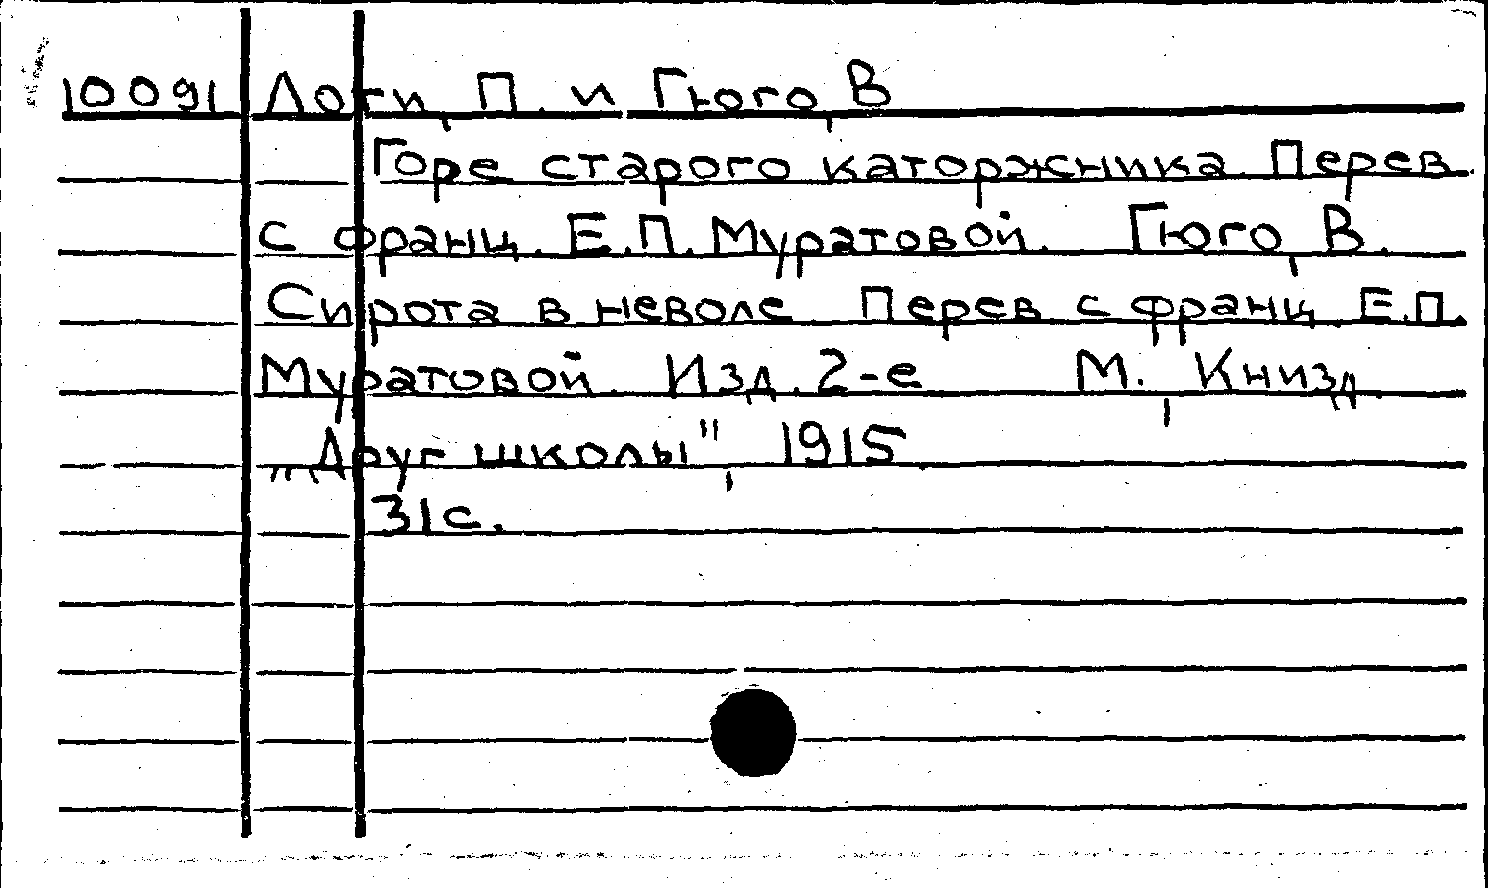 10091 Лоти, П. и Гюго, В
Горе старого каторжника. Перев.
с франц. Е.П. Муратовой. Гюго, В.
Сирота в неволе. Перев. с франц. Е.П.
Муратовой. Изд. 2-е М., Книзд.
„Друг школы", 1915.
31 с.